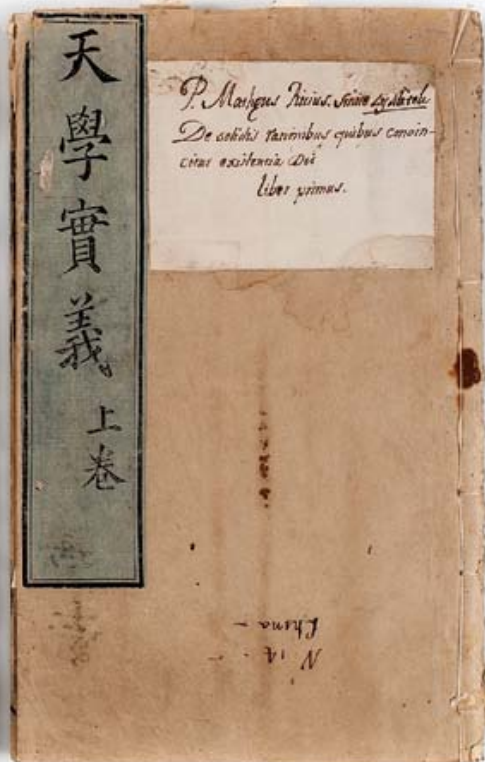 天學實義
上卷
P. Matheus Ricius. sinice Ly Mateu
De solidis rationibus quibus convin-
citur existencia Dei
liber primus.
China -
N 14 -